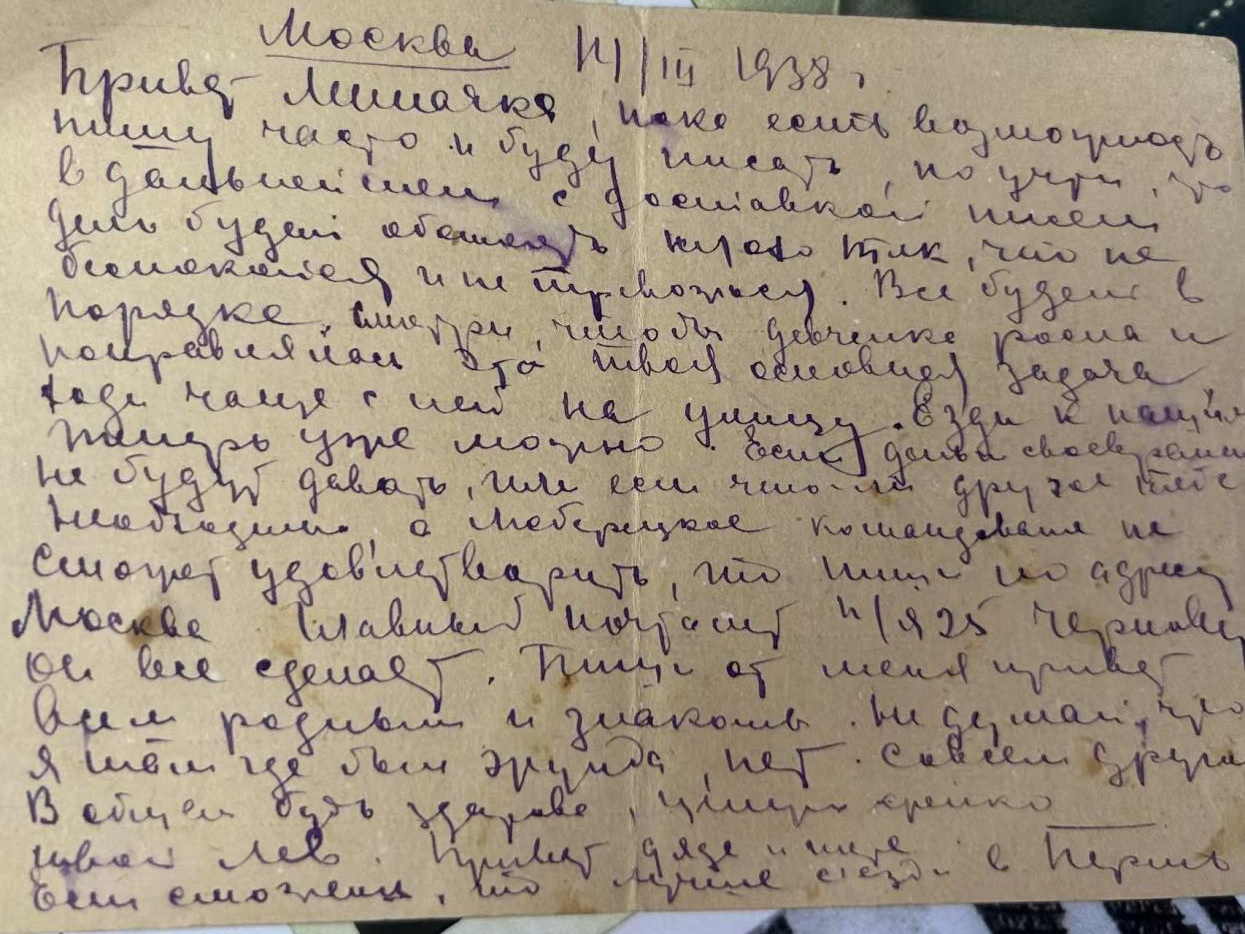 Москва 14/III 1938 г.
Привет Мишачка, пока есть возможность
пишу часто и буду писать, но учти, что
в дальнейшем с доставкой писем
дело будет обстоять так, что не
беспокойся и не тревожься. Все будет в
порядке. Смотри, чтобы девченка росла и
поправлялась Это твоя основная задача
ходи чаще с ней на улицу. Езди к нашим
теперь уже можно. Если деньги своевремен
не будут давать, или если что-ли другое тебе
необходимо, а командование не
сможет удовлетворить, то пиши по адресу
Москва Главный почтамт п/я 25 Чернову
он все сделает. Пиши от меня привет
всем родным и знакомым. Не думай, что
я там где был, нет. Совсем друго
В общем будь здорова, целую крепко
твой Лев. Привет дяде и тете
Если сможешь, то лучше съезди в Пермь